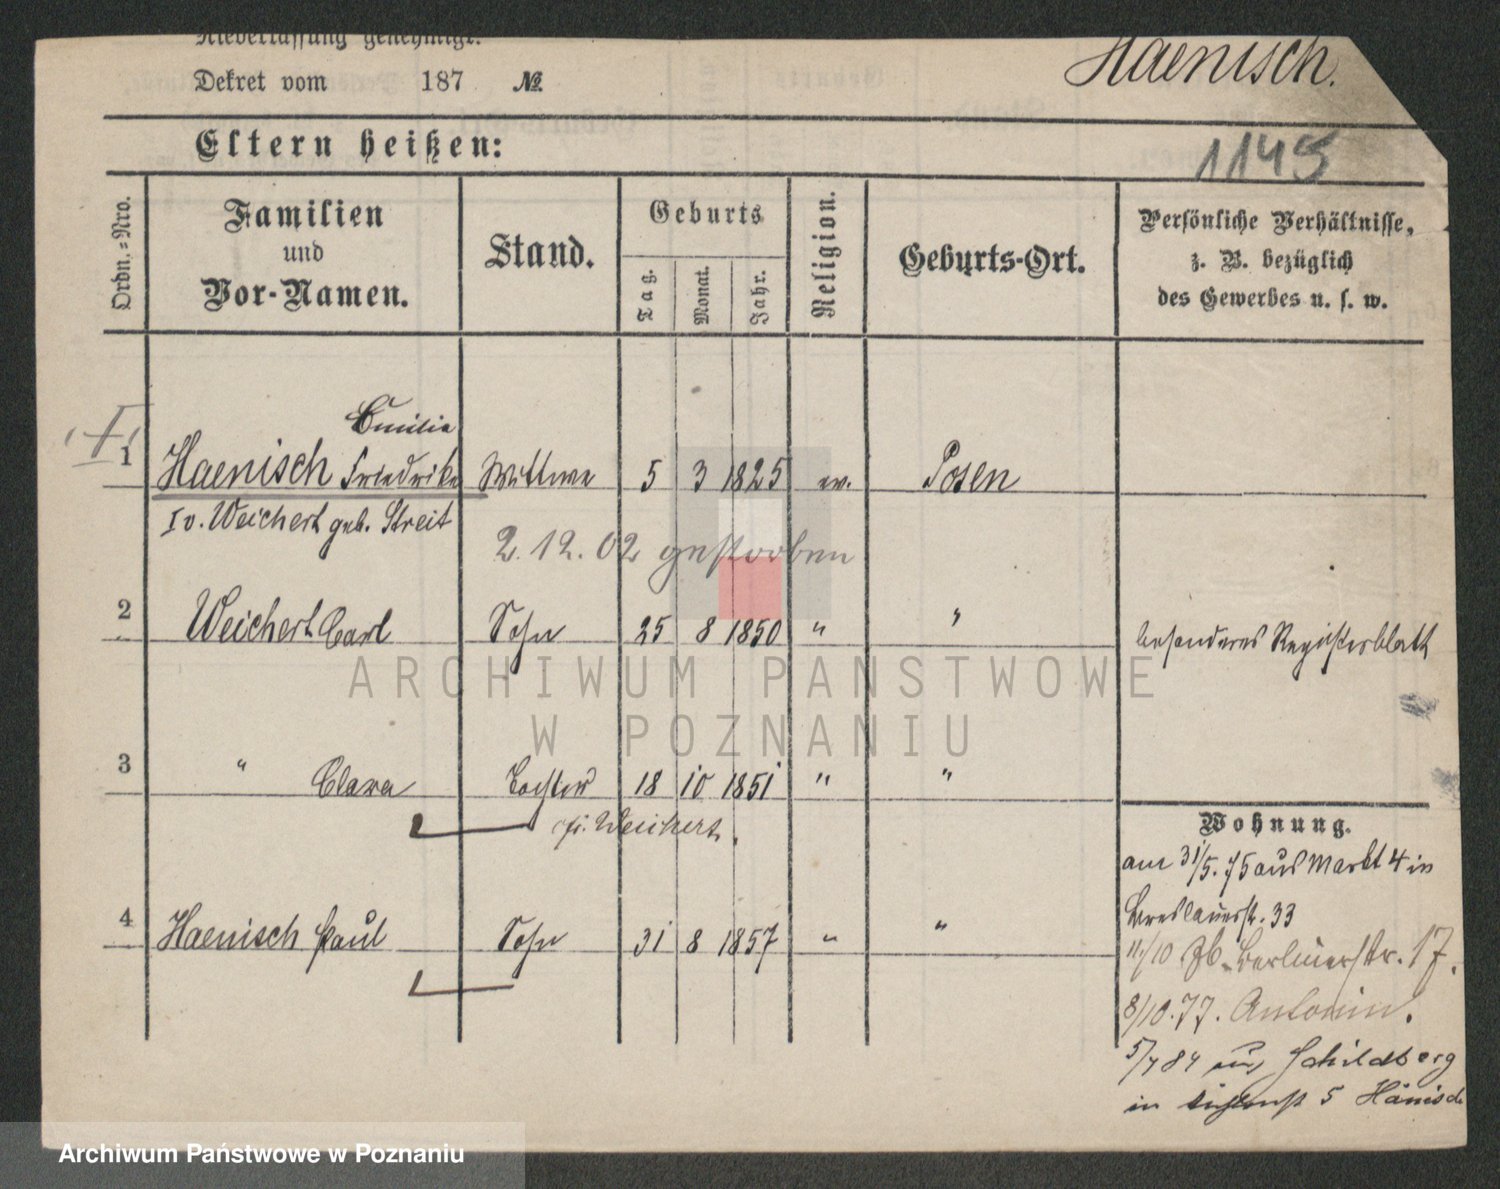 Niederlassung genehmigt.
Haenisch.
Dekret vom 187 №
1145
Eltern heißen:
Ordn.=Nro.
Familien
und
Vor-Namen.
Stand.
Geburts
Tag.
Monat.
Jahr.
Religion.
Geburts-Ort.
Persönliche Verhältnisse,
z. B. bezüglich
des Gewerbes u. s. w.
Emilie
1 Haenisch Friedrike Wittwe 5 3 1825 ev. Posen
I v. Weichert geb. Streit
2.12.02 gestorben
2 Weichert Carl Sohn 25 8 1850 " " besonderes Registerblatt
ARCHIWUM PAŃSTWOWE
W POZNANIU
3 " Clara Tochter 18 10 1851 " "
Weichert.
Wohnung.
am 31/5. 75 aus Markt 4 in
Breslauerstr. 33
4 Haenisch Paul Sohn 31 8 1857 " "
11/10 76. Berlinerstr. 17.
8/10.77. Antonin.
5/4 84 aus Schildberg
in 5 Hänisch
Archiwum Państwowe w Poznaniu